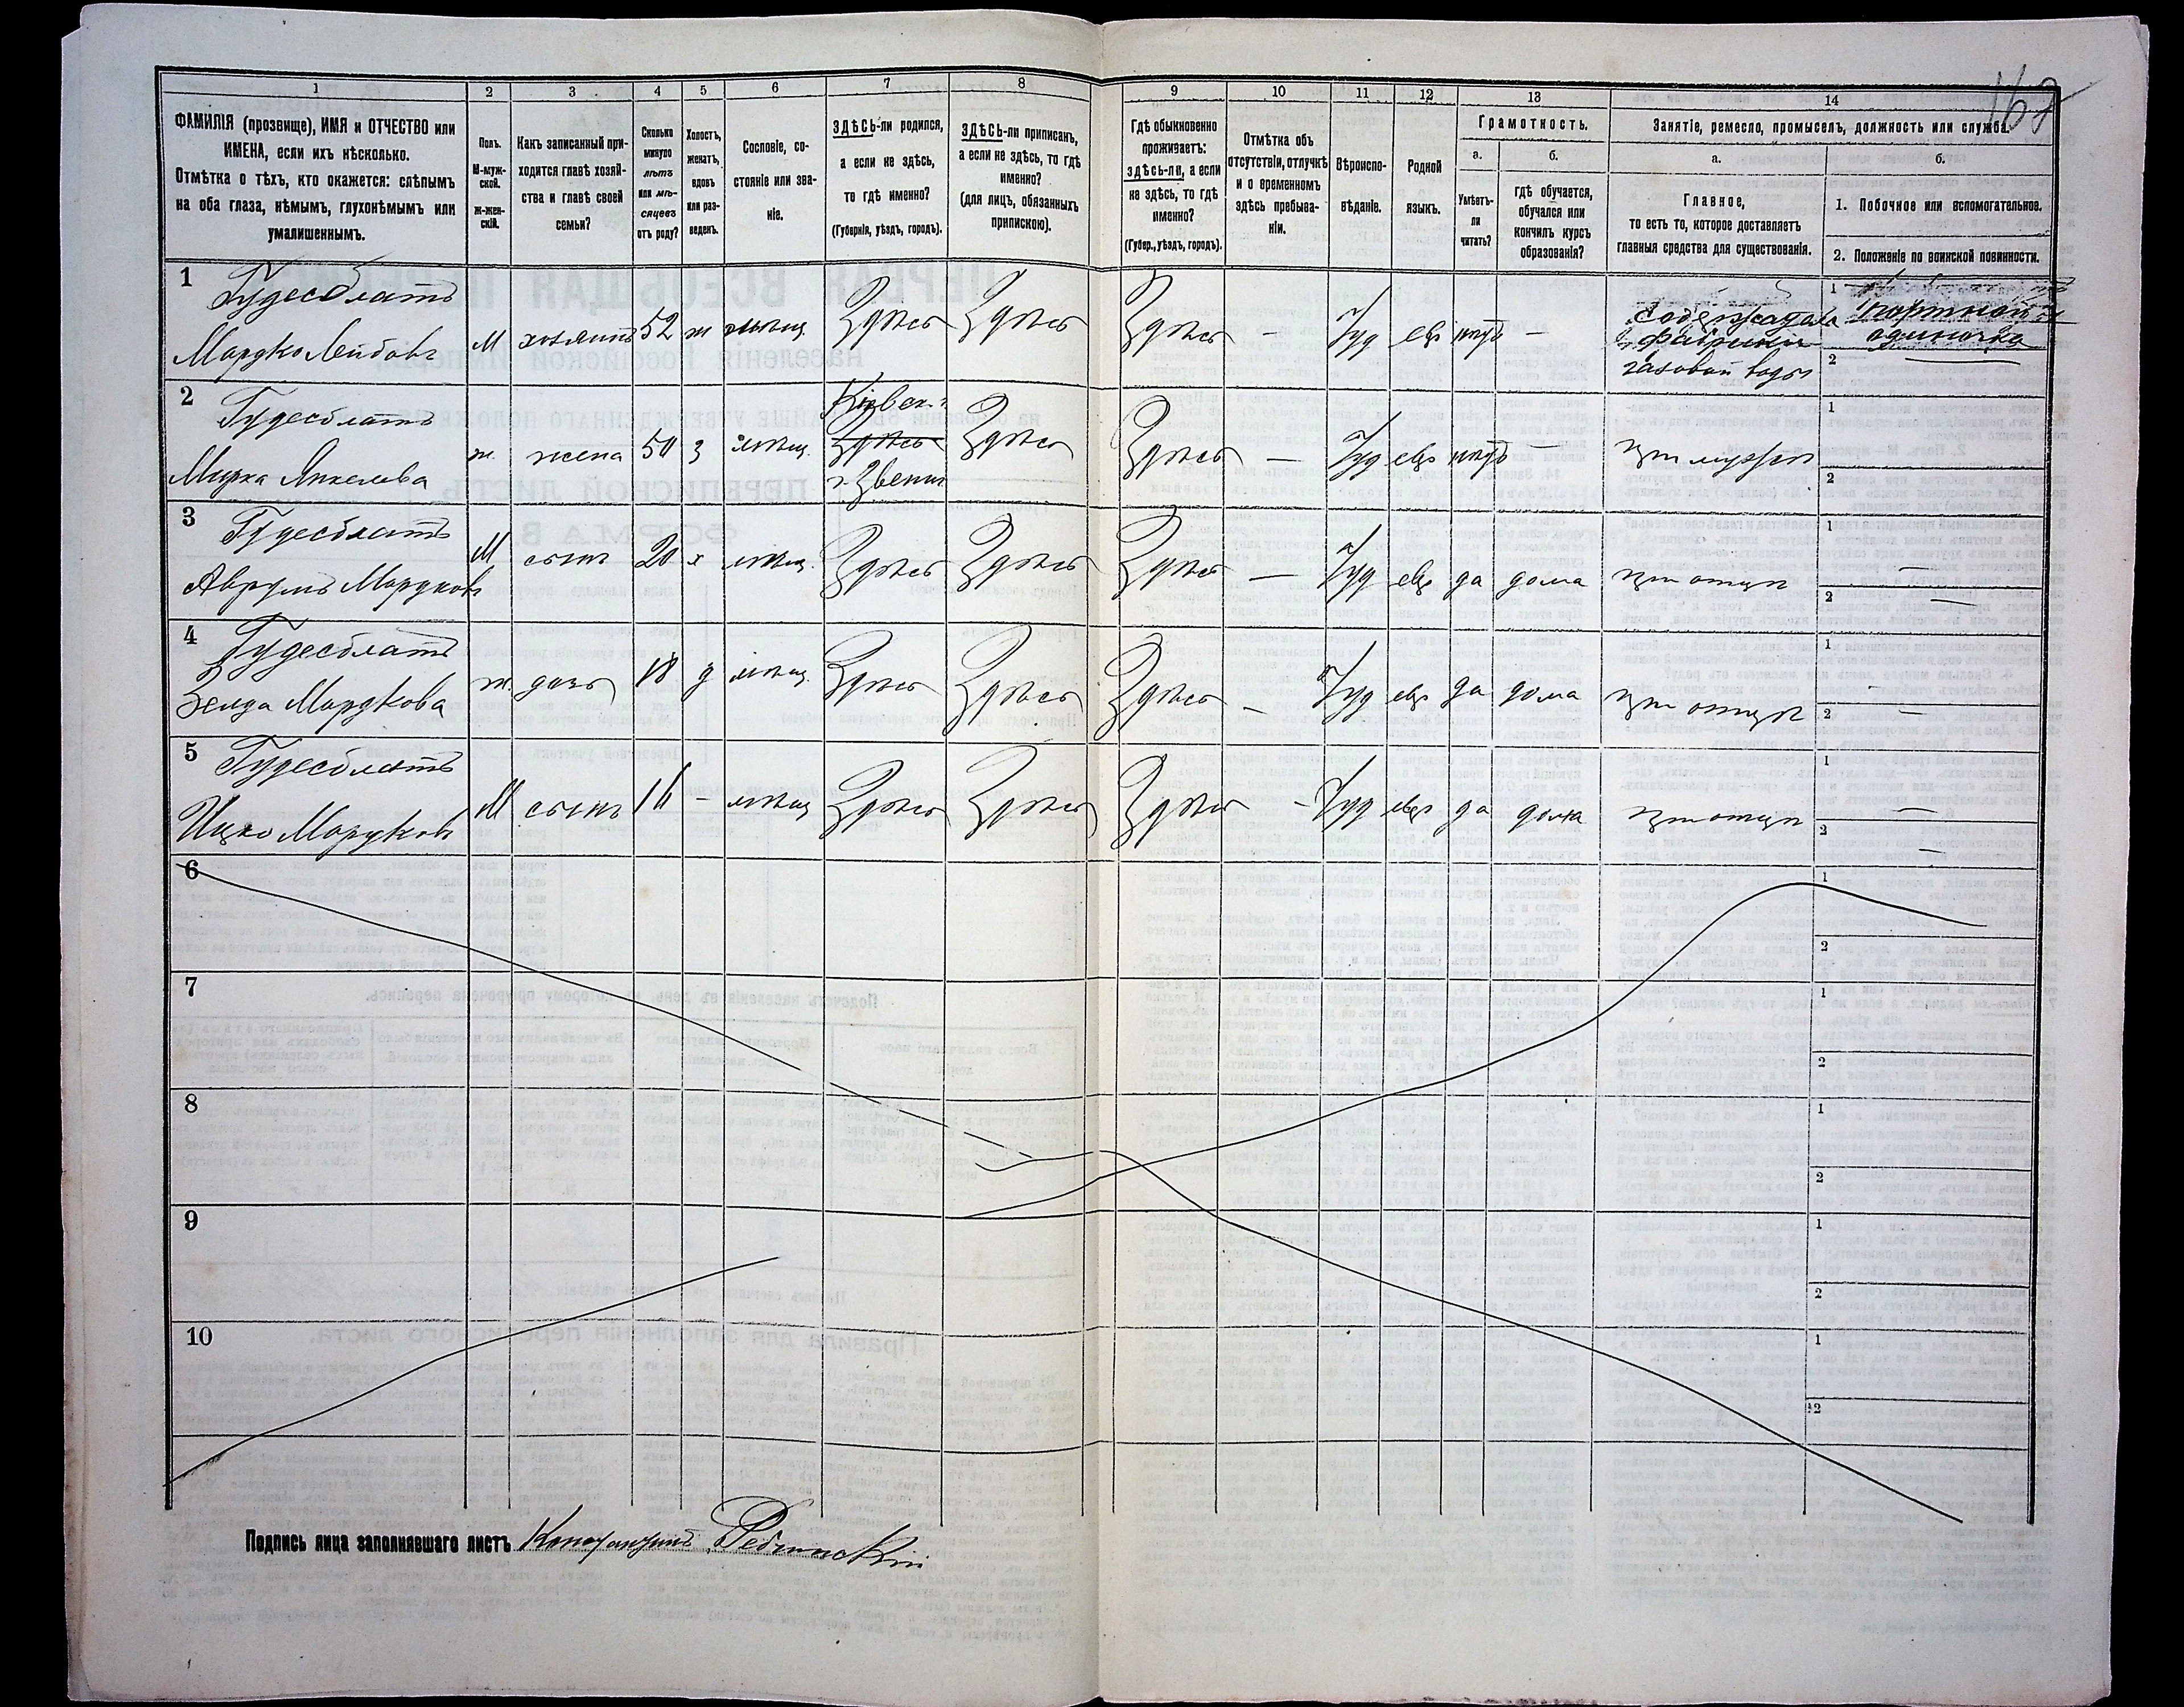 167
1
2
3
4
5
6
7
8
9
10
11
12
13
14
ФАМИЛІЯ (прозвище), ИМЯ и ОТЧЕСТВО или
ИМЕНА, если ихъ нѣсколько.
Отмѣтка о тѣхъ, кто окажется: слѣпымъ
на оба глаза, нѣмымъ, глухонѣмымъ или
умалишеннымъ.
Полъ.
М-муж-
ской.
Ж-жен-
скій.
Какъ записанный при-
ходится главѣ хозяй-
ства и главѣ своей
семьи?
Сколько
минуло
лѣтъ
или мѣ-
сяцевъ
отъ роду?
Холостъ,
женатъ,
вдовъ
или раз-
веденъ.
Сословіе, со-
стояніе или зва-
ніе.
ЗДѢСЬ-ли родился,
а если не здѣсь,
то гдѣ именно?
(Губернія, уѣздъ, городъ).
ЗДѢСЬ-ли приписанъ,
а если не здѣсь, то гдѣ
именно?
(для лицъ, обязанныхъ
припискою).
Гдѣ обыкновенно
проживаетъ:
здѣсь-ли, а если
не здѣсь, то гдѣ
именно?
(Губер., уѣздъ, городъ).
Отмѣтка объ
отсутствіи, отлучкѣ
и о временномъ
здѣсь пребыва-
ніи.
Вѣроиспо-
вѣданіе.
Родной
языкъ.
Грамотность.
а.
Умѣетъ-
ли
читать?
б.
гдѣ обучается,
обучался или
кончилъ курсъ
образованія?
Занятіе, ремесло, промыселъ, должность или служба.
а.
Главное,
то есть то, которое доставляетъ
главныя средства для существованія.
б.
1. Побочное или вспомогательное.
2. Положеніе по воинской повинности.
1
Гудесблатъ
Мордко Лейбовъ
М
хозяинъ
52
ж
мѣщ.
Здѣсь
Здѣсь
Здѣсь
—
Іуд
евр
нѣтъ
—
Содержатель
фабрики
газовой воды
1
портной
одиночка
2
—
2
Гудесблатъ
Мирка Янкелева
ж.
жена
50
з
мѣщ.
Кіевск. г
Здѣсь
г. Звениг
Здѣсь
Здѣсь
—
Іуд
евр
нѣтъ
—
при мужѣ
1
2
3
Гудесблатъ
Аврумъ Мордковъ
М
сынъ
20
х
мѣщ.
Здѣсь
Здѣсь
Здѣсь
—
Іуд
евр
да
дома
при отцѣ
1
—
2
—
4
Гудесблатъ
Зелда Мордкова
ж.
дочь
18
д
мѣщ.
Здѣсь
Здѣсь
Здѣсь
—
Іуд
евр
да
дома
при отцѣ
1
—
2
—
5
Гудесблатъ
Ицко Мордковъ
М
сынъ
16
–
мѣщ
Здѣсь
Здѣсь
Здѣсь
–
Іуд
евр
да
дома
при отцѣ
1
—
2
—
6
1
2
7
1
2
8
1
2
9
1
2
10
1
2
Подпись лица заполнявшаго листъ Константинъ